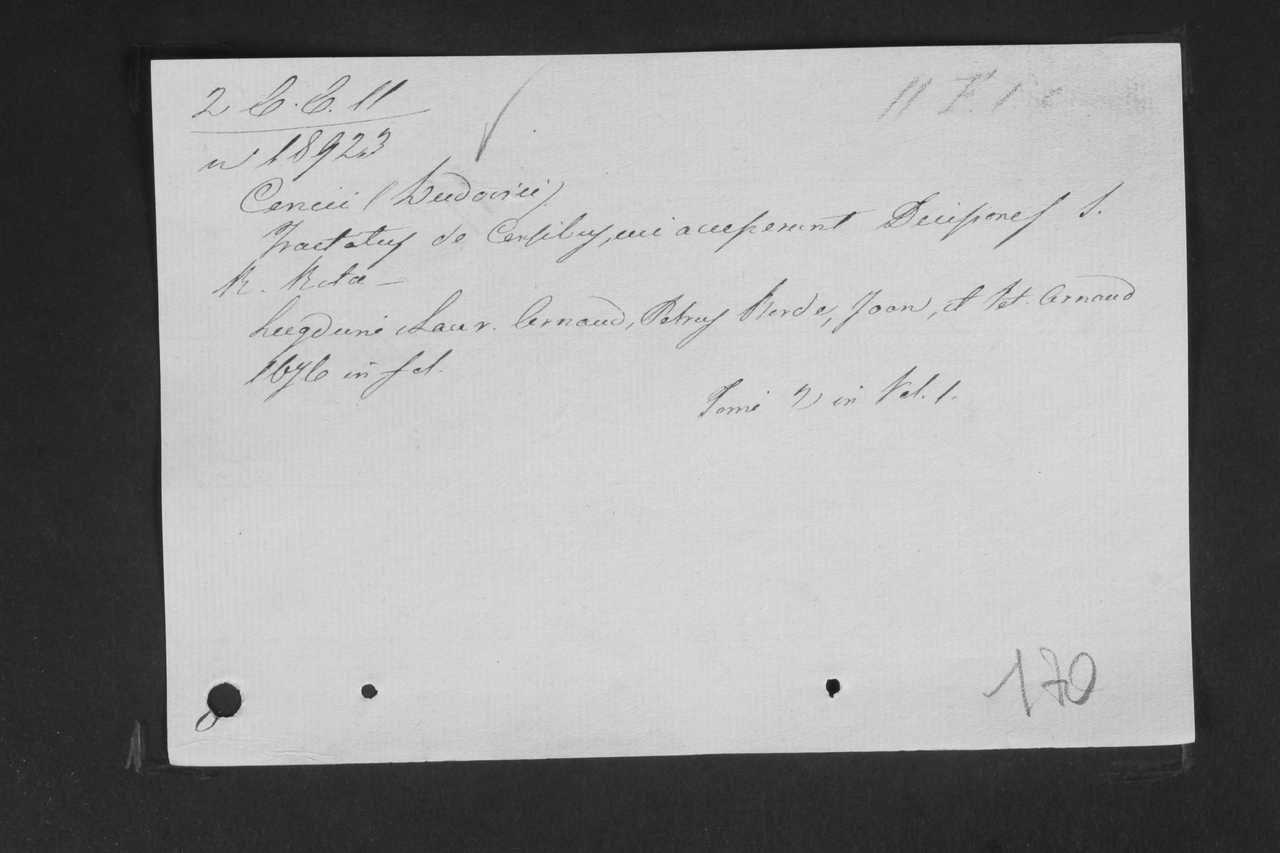 2 C. C. 11
n 18923
Cencii (Ludovici)
Tractatus de Censibus, cui accesserunt Decisiones S.
R. Rotæ —
Lugduni Laur. Arnaud, Petrus Borde, Joan, et Pet. Arnaud
1676 in fol.
Tomi 2 in Vol. 1.
170